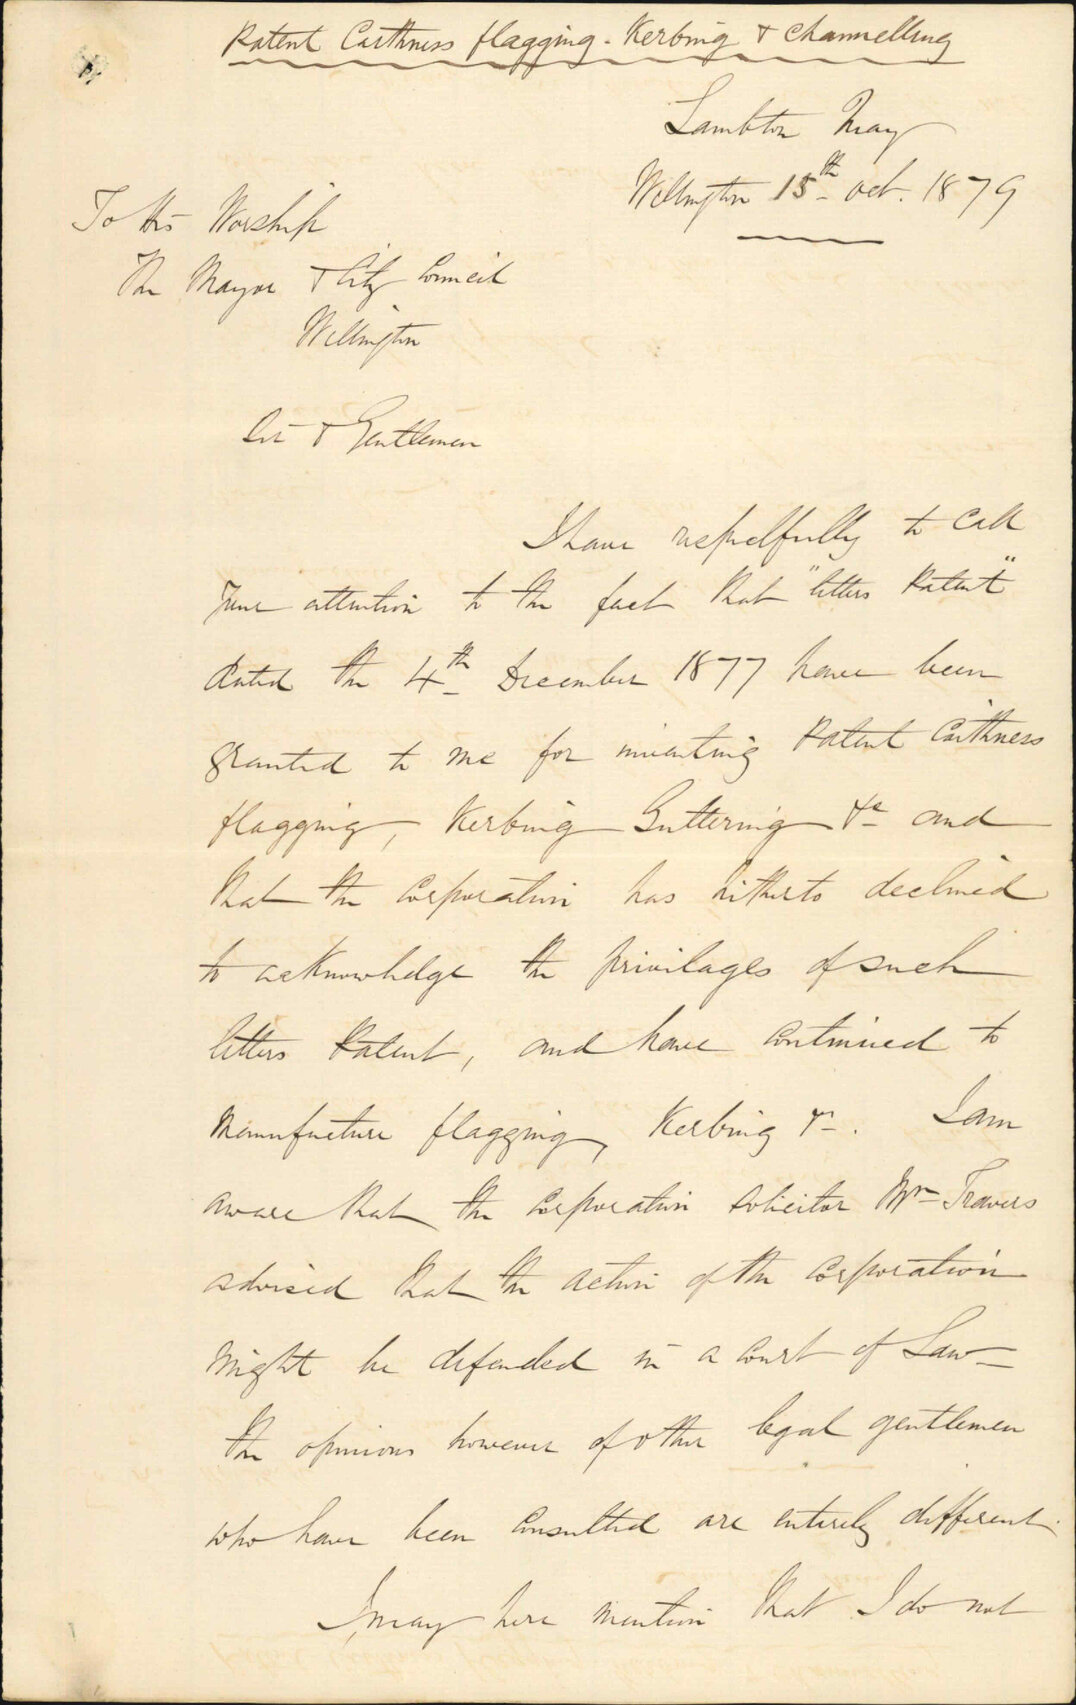 Patent Caithness flagging - Kerbing & Channelling
Lambton Quay
Wellington 15th Oct. 1879
To His Worship
The Mayor & City Council
Wellington
Sir & Gentlemen
I have respectfully to call
your attention to the fact that "letters Patent"
dated the 4th December 1877 have been
granted to me for inventing Patent Caithness
flagging, Kerbing Guttering &c and
that the Corporation has hitherto declined
to acknowledge the privilages of such
letters Patent, and have continued to
manufacture flagging, Kerbing &c. I am
aware that the Corporation Solicitor Mr Travers
advised that the action of the Corporation
might be defended in a Court of Law
the opinions however of other legal gentlemen
who have been consulted are entirely different.
I may here mention that I do not